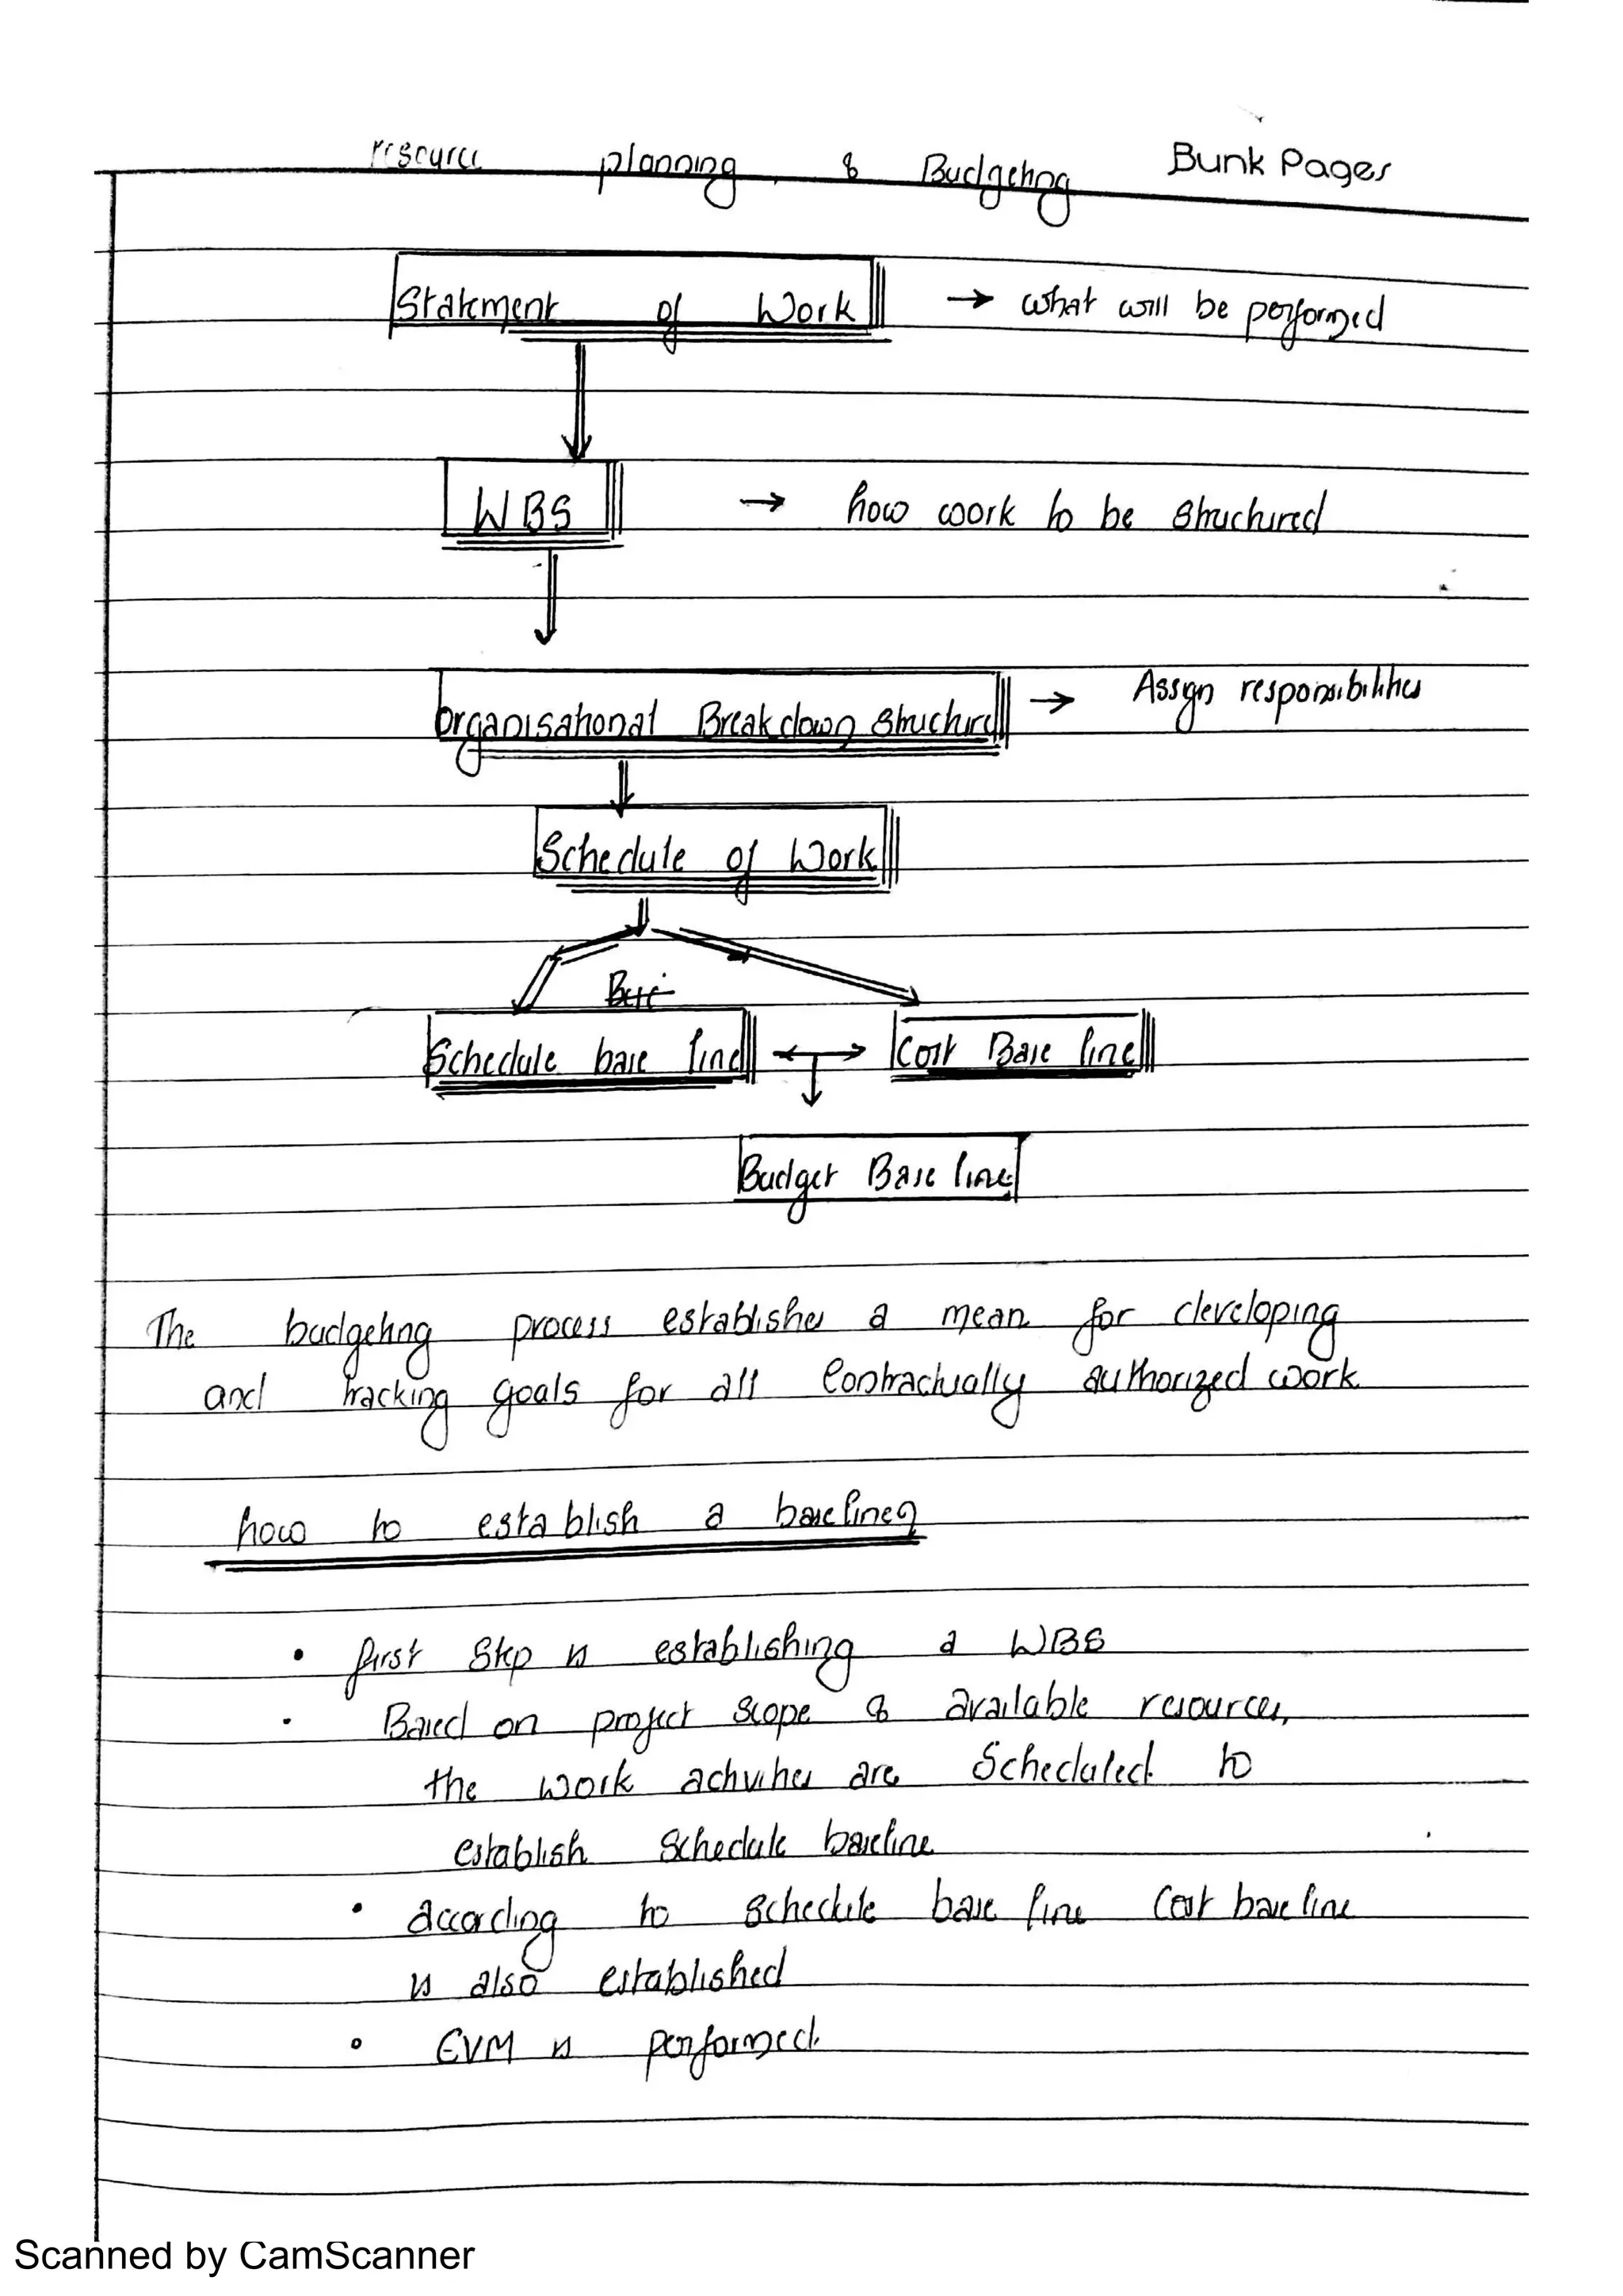 resource planning & Budgeting Bunk Pages
Statement of Work → what will be performed
WBS → how work to be structured
Organisational Breakdown structure → Assign responsibilities
Schedule of Work
Schedule base line ↔ Cost Base line
Budget Base line
The budgeting process establishes a mean for developing
and tracking goals for all Contractually authorized work
how to establish a baseline?
• first step is establishing a WBS
• Based on project scope & available resources,
the work activities are Scheduled to
establish schedule baseline
• according to schedule base line Cost base line
is also established
• EVM is performed.
Scanned by CamScanner